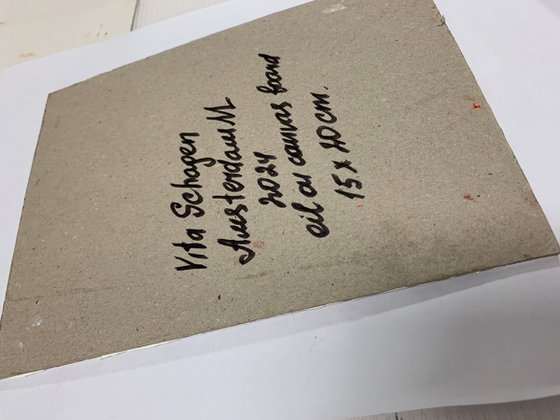 Vita Schagen
Amsterdam M
2024
oil on canvas board
15 x 20 cm.